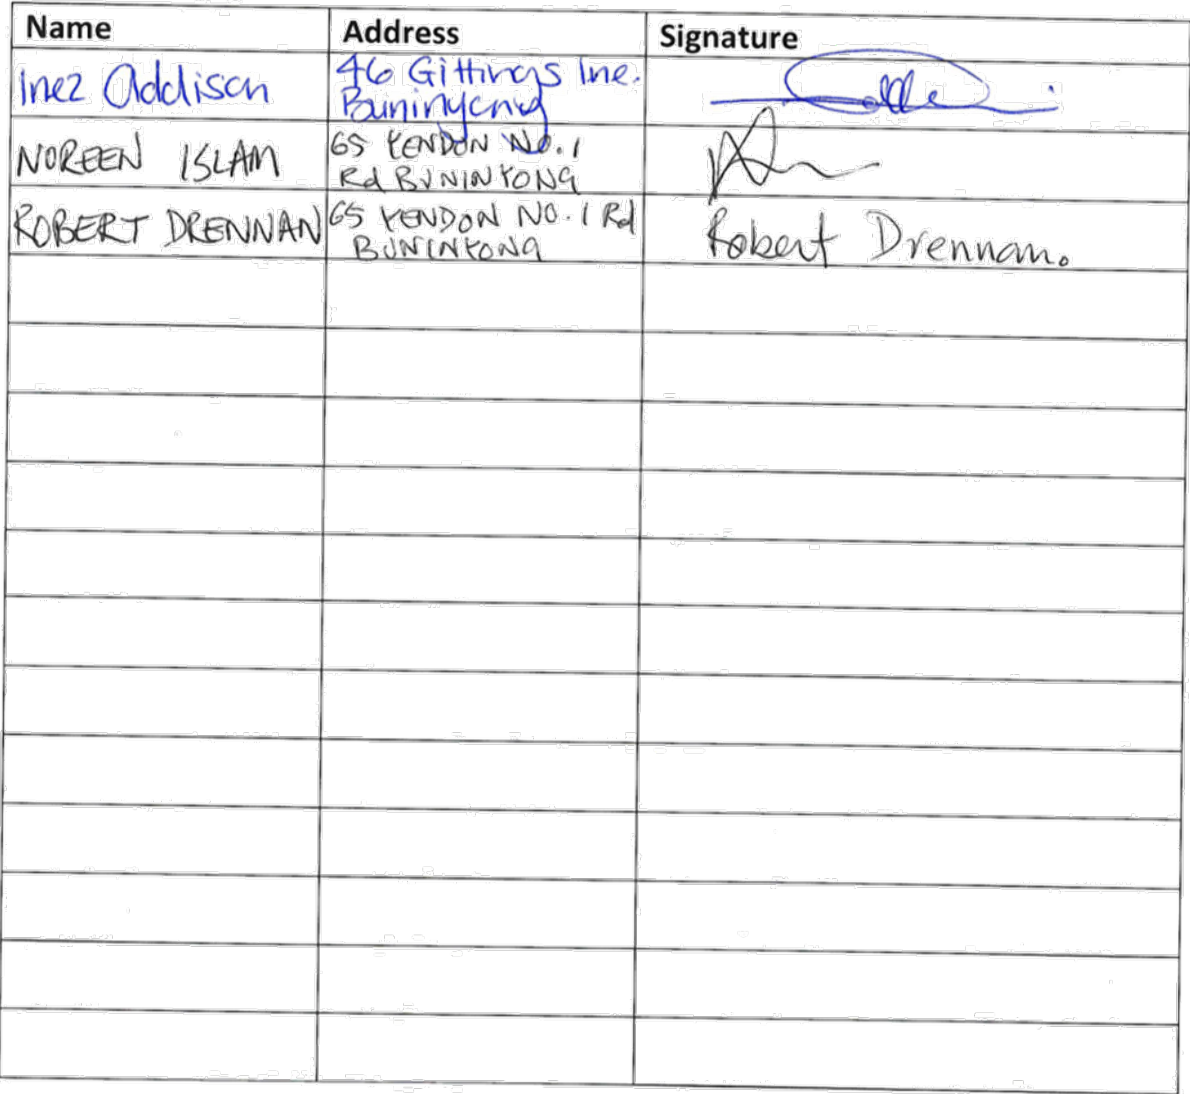 Name Address Signature
Inez Addison
46 Gittings lne.
Buninyong
NOREEN ISLAM
65 YENDON NO. 1
Rd BUNINYONG
ROBERT DRENNAN
65 YENDON NO. 1 Rd
BUNINYONG
Robert Drennan.